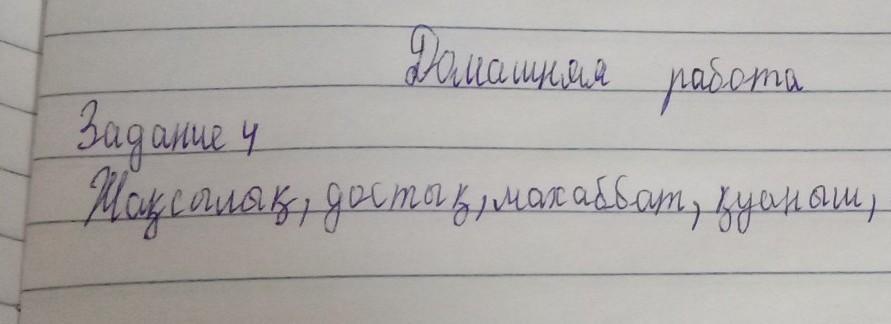 Домашняя работа
Задание 4
Жақсылық, достық, махаббат, қуаныш,